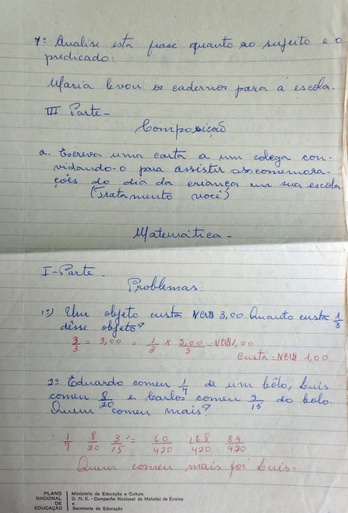 7º Analise esta frase quanto ao sujeito e o
predicado:
Maria levou os cadernos para a escola.
III Parte-
Composição
a. Escreva uma carta a um colega con-
vidando-o para assistir as comemora-
ções do dia da criança em sua escola
(tratamento você)
Matemática-
I-Parte-
Problemas
1º) Um objeto custa NCR$ 3,00. Quanto custa 1/3
dêsse objeto?
3/3 = 3,00 = 1/3 x 3,00
Custa = NCR$ 1,00
2º Eduardo comeu 1/7 de um bôlo, Luis
comeu 8/20 e Carlos comeu 3/15 do bolo.
Quem comeu mais?
1/7 8/20 3/15 = 60/420 168/420 84/420
Quem comeu mais foi Luis.
PLANO
NACIONAL
DE
EDUCAÇÃO
Ministério da Educação e Cultura
D. N. E. - Campanha Nacional de Material de Ensino
e
Secretaria de Educação